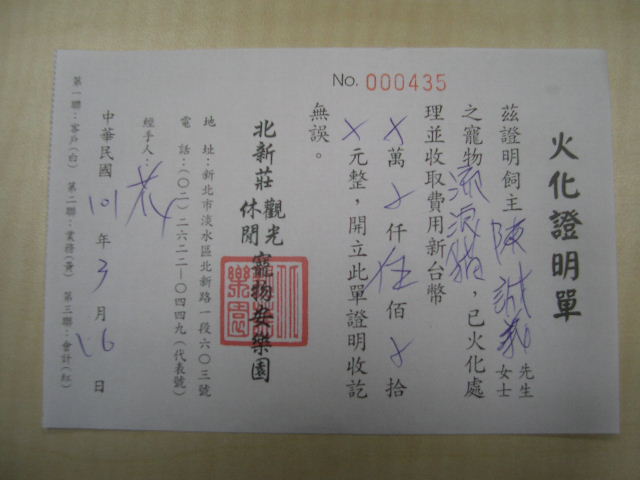 No. 000435
火化證明單
茲證明飼主 陳誠義 先生女士
之寵物 流浪貓 ,已火化處
理並收取費用新台幣
X萬X仟伍佰X拾
X元整,開立此單證明收訖
無誤。
北新莊休閒觀光寵物安樂園
地 址:新北市淡水區北新路一段六○三號
電 話:(○二)二六二二-○四四九(代表號)
經手人:
中華民國 101 年 3 月 16 日
第一聯:客戶(白) 第二聯:業務(黃) 第三聯:會計(紅)